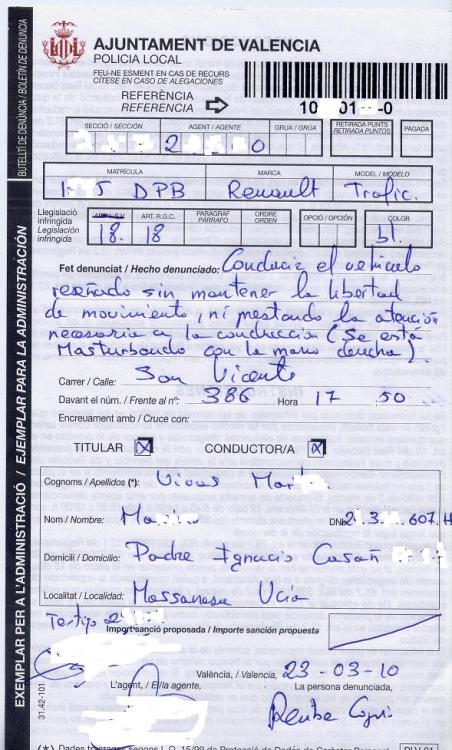 AJUNTAMENT DE VALENCIA
POLICIA LOCAL
FEU-NE ESMENT EN CAS DE RECURS
CÍTESE EN CASO DE ALEGACIONES
REFERÈNCIA
REFERENCIA
10 01 -0
SECCIÓ / SECCIÓN
AGENT / AGENTE
GRUA / GRÚA
RETIRADA PUNTS
RETIRADA PUNTOS
PAGADA
2 0
MATRÍCULA
MARCA
MODEL / MODELO
5 DPB Renault Trafic.
Legislació infringida
Legislación infringida
ART. R.G.C.
PARÀGRAF
PÁRRAFO
ORDRE
ORDEN
OPCIÓ / OPCIÓN
COLOR
18. 18 bl.
Fet denunciat / Hecho denunciado: Conducir el vehiculo
reseñado sin mantener la libertad
de movimiento, ni prestando la atención
necesaria a la conducción (Se está
Masturbando con la mano derecha).
Carrer / Calle: San Vicente
Davant el núm. / Frente al nº: 386 Hora 17 50
Encreuament amb / Cruce con:
TITULAR X CONDUCTOR/A X
Cognoms / Apellidos (*): Vivas Mar
Nom / Nombre: Ma DNI: 2 .3 .607.H
Domicili / Domicilio: Padre Ignacio Casañ
Localitat / Localidad: Massanasa Vcia
Testigo 2
Import sanció proposada / Importe sanción propuesta
València, / Valencia, 23-03-10
L'agent, / El/la agente,
La persona denunciada,
31.42-101
BUTLETÍ DE DENÚNCIA / BOLETÍN DE DENUNCIA
EXEMPLAR PER A L'ADMINISTRACIÓ / EJEMPLAR PARA LA ADMINISTRACIÓN